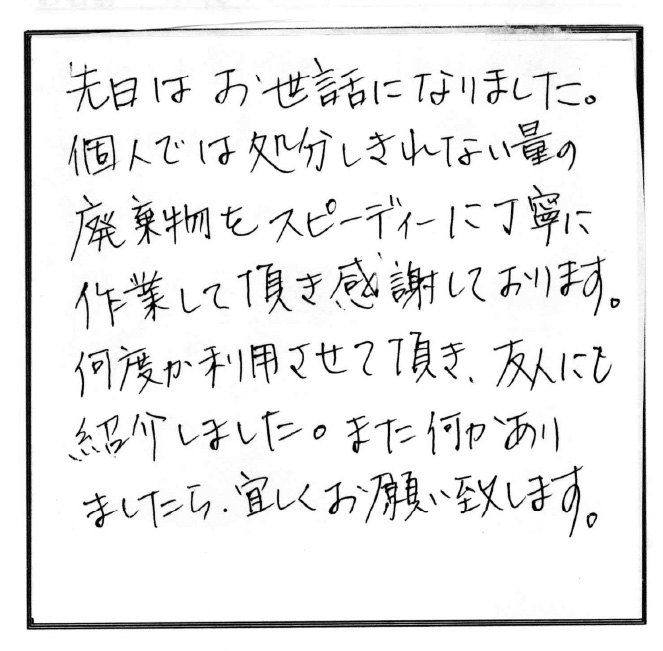 先日はお世話になりました。
個人では処分しきれない量の
廃棄物をスピーディーに丁寧に
作業して頂き感謝しております。
何度か利用させて頂き、友人にも
紹介しました。また何かあり
ましたら、宜しくお願い致します。